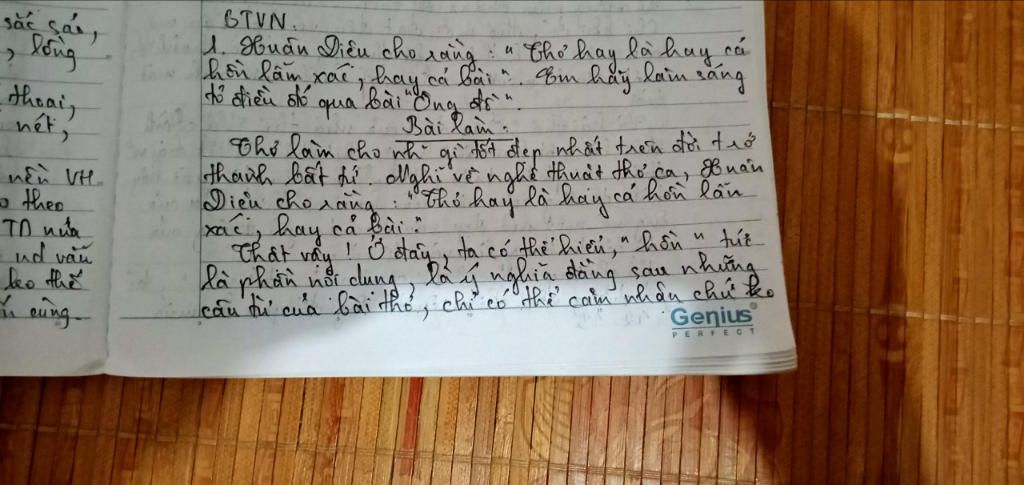 sắc sảo,
, lồng
thoại,
nét,
nên VH.
o theo
TN nửa
nd vẫn
keo thể
cũng.
BTVN.
1. Xuân Diệu cho rằng: "Thơ hay là hay cả
hồn lẫn xác, hay cả bài". Em hãy làm sáng
tỏ điều đó qua bài "Ông đồ".
Bài làm.
Thơ làm cho nh~ gì tốt đẹp nhất trên đời trở
thành bất tử. Nghĩ về nghệ thuật thơ ca, Xuân
Diệu cho rằng: "Thơ hay là hay cả hồn lẫn
xác, hay cả bài."
Thật vậy! Ở đây, ta có thể hiểu, "hồn" tức
là phần nội dung, là ý nghĩa đằng sau những
câu từ của bài thơ, chỉ có thể cảm nhận chứ ko
Genius
PERFECT